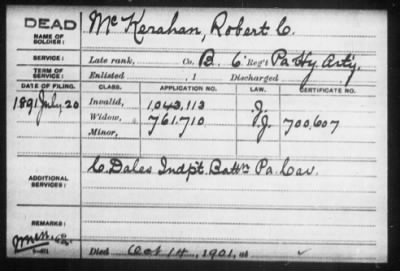 DEAD
NAME OF SOLDIER: McKerahan, Robert C.
SERVICE: Late rank, Co. B. 6 Reg't Pa Hy Arty.
TERM OF SERVICE: Enlisted , 1 Discharged
DATE OF FILING. CLASS. APPLICATION NO. LAW. CERTIFICATE NO.
1891 July 20 Invalid, 1,043,113 J.
Widow, 761,710 J. 700,607
Minor,
ADDITIONAL SERVICES: C. Dales Indpt. Battn Pa. Cav.
REMARKS:
Died Oct 14, 1901, at